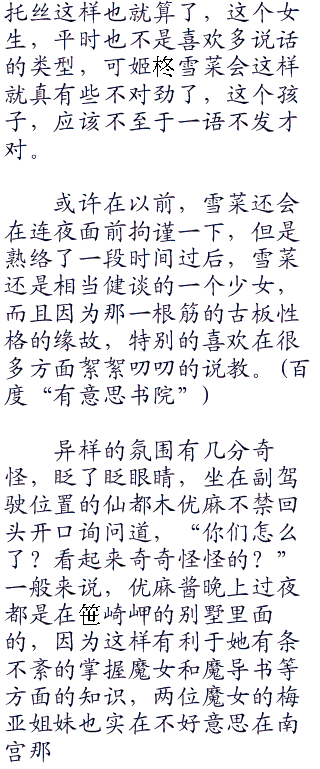 托丝这样也就算了，这个女
生，平时也不是喜欢多说话
的类型，可姬柊雪菜会这样
就真有些不对劲了，这个孩
子，应该不至于一语不发才
对。
或许在以前，雪菜还会
在连夜面前拘谨一下，但是
熟络了一段时间过后，雪菜
还是相当健谈的一个少女，
而且因为那一根筋的古板性
格的缘故，特别的喜欢在很
多方面絮絮叨叨的说教。（百
度“有意思书院”）
异样的氛围有几分奇
怪，眨了眨眼睛，坐在副驾
驶位置的仙都木优麻不禁回
头开口询问道，“你们怎么
了？看起来奇奇怪怪的？”
一般来说，优麻酱晚上过夜
都是在笹崎岬的别墅里面
的，因为这样有利于她有条
不紊的掌握魔女和魔导书等
方面的知识，两位魔女的梅
亚姐妹也实在不好意思在南
宫那